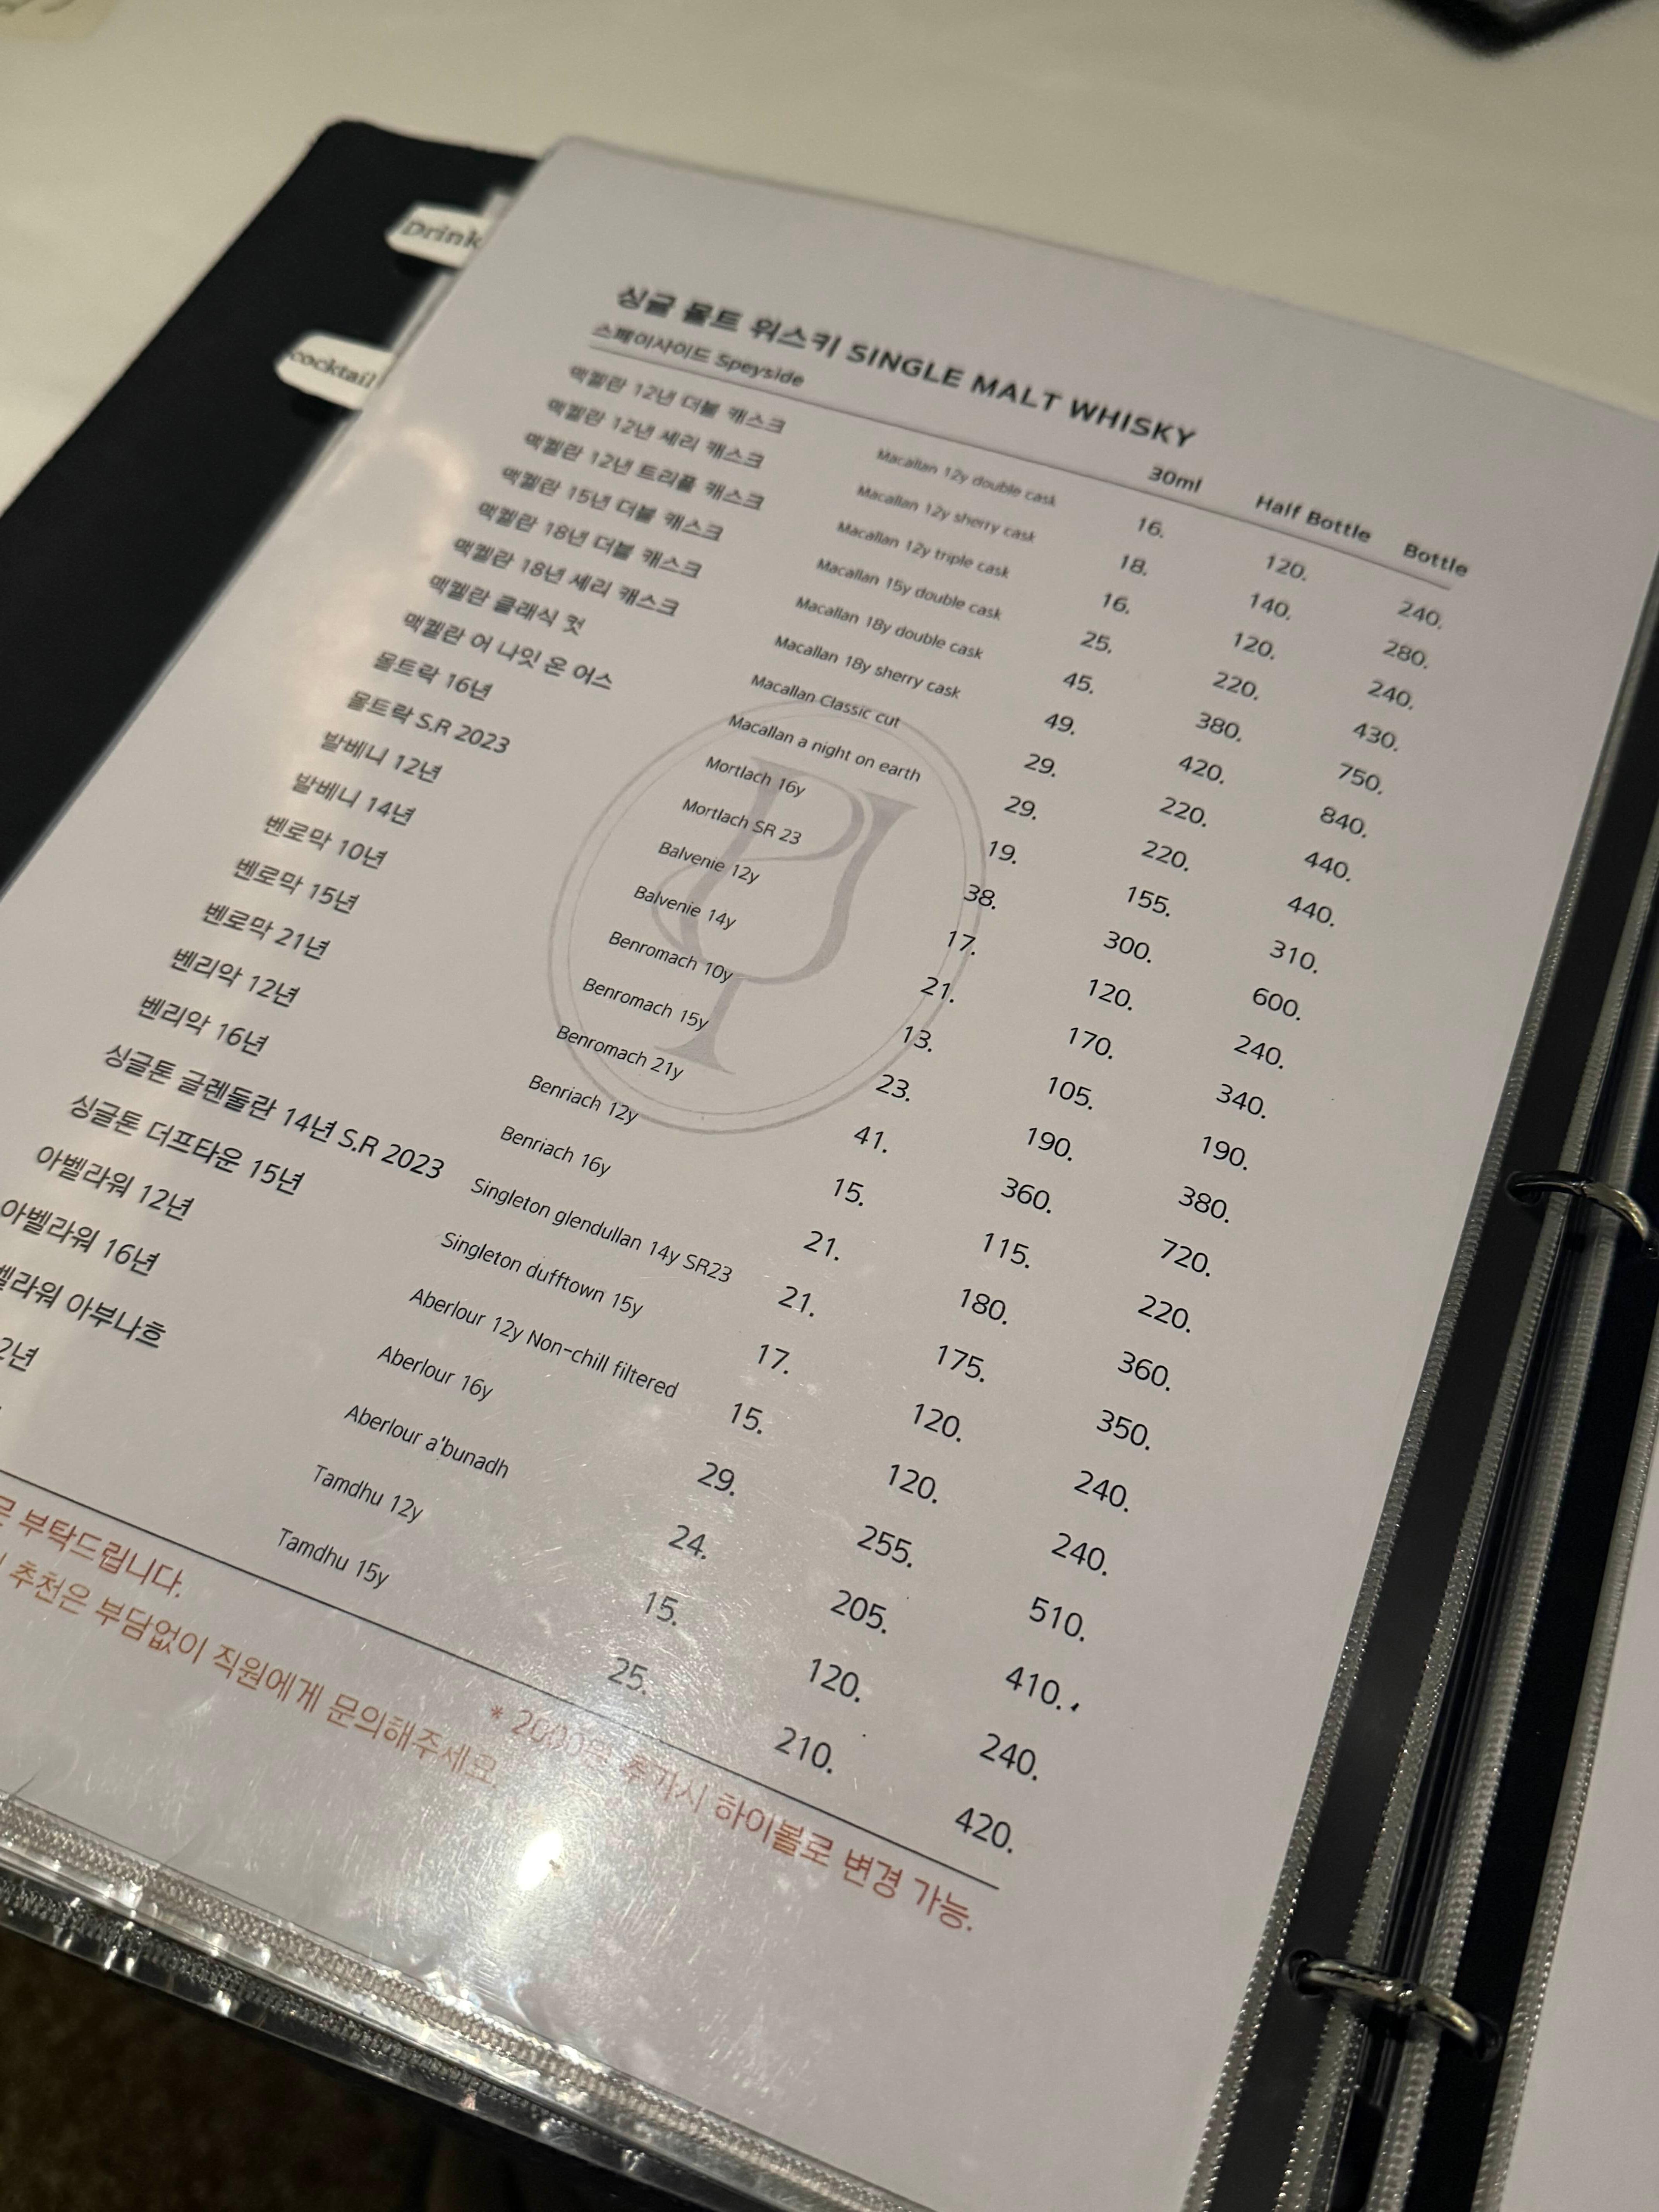 Drink
cocktail
싱글 몰트 위스키 SINGLE MALT WHISKY
스페이사이드 Speyside 30ml Half Bottle Bottle
맥켈란 12년 더블 캐스크 Macallan 12y double cask 16. 120. 240.
맥켈란 12년 셰리 캐스크 Macallan 12y sherry cask 18. 140. 280.
맥켈란 12년 트리플 캐스크 Macallan 12y triple cask 16. 120. 240.
맥켈란 15년 더블 캐스크 Macallan 15y double cask 25. 220. 430.
맥켈란 18년 더블 캐스크 Macallan 18y double cask 45. 380. 750.
맥켈란 18년 셰리 캐스크 Macallan 18y sherry cask 49. 420. 840.
맥켈란 클래식 컷 Macallan Classic cut 29. 220. 440.
맥켈란 어 나잇 온 어스 Macallan a night on earth 29. 220. 440.
몰트락 16년 Mortlach 16y 19. 155. 310.
몰트락 S.R 2023 Mortlach SR 23 38. 300. 600.
발베니 12년 Balvenie 12y 17. 120. 240.
발베니 14년 Balvenie 14y 21. 170. 340.
벤로막 10년 Benromach 10y 13. 105. 190.
벤로막 15년 Benromach 15y 23. 190. 380.
벤로막 21년 Benromach 21y 41. 360. 720.
벤리악 12년 Benriach 12y 15. 115. 220.
벤리악 16년 Benriach 16y 21. 180. 360.
싱글톤 글렌둘란 14년 S.R 2023 Singleton glendullan 14y SR23 21. 175. 350.
싱글톤 더프타운 15년 Singleton dufftown 15y 17. 120. 240.
아벨라워 12년 Aberlour 12y Non-chill filtered 15. 120. 240.
아벨라워 16년 Aberlour 16y 29. 255. 510.
벨라워 아부나흐 Aberlour a'bunadh 24. 205. 410.
2년 Tamdhu 12y 15. 120. 240.
Tamdhu 15y 25. 210. 420.
부탁드립니다.
추천은 부담없이 직원에게 문의해주세요.
* 2000원 추가시 하이볼로 변경 가능.